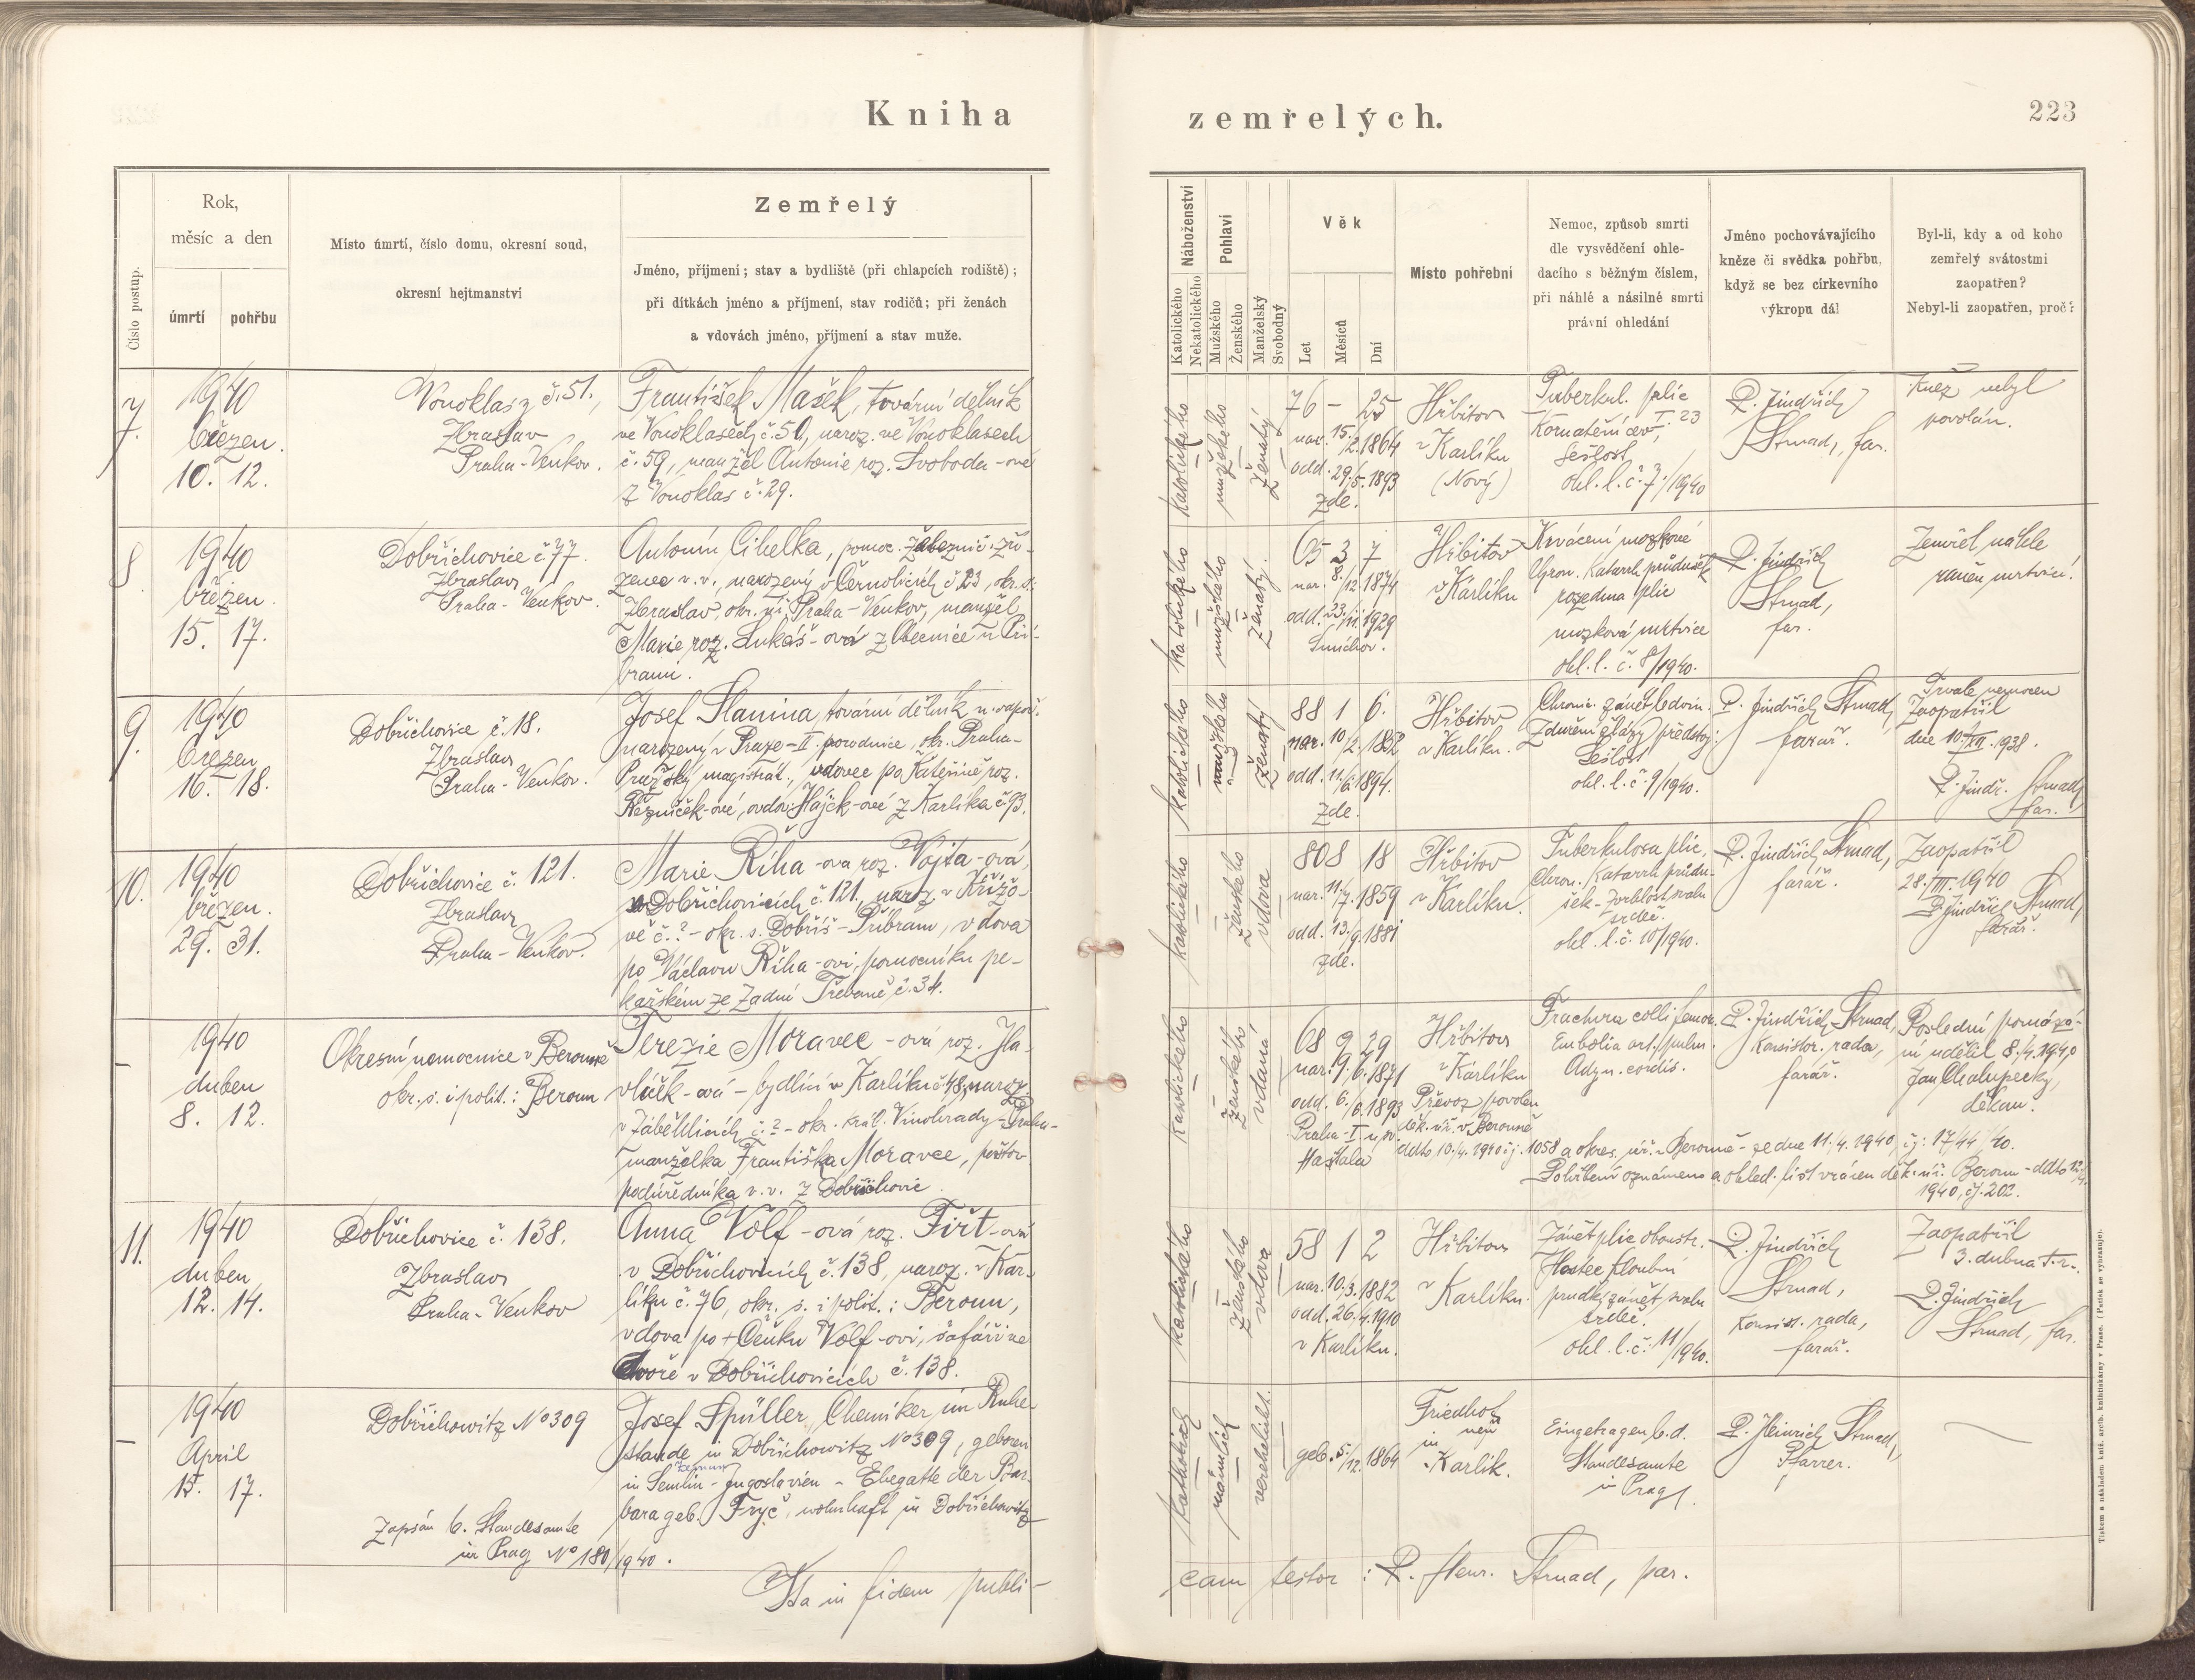 Kniha
zemřelých.
223
Číslo postup.
Rok,
měsíc a den
úmrtí
pohřbu
Místo úmrtí, číslo domu, okresní soud,
okresní hejtmanství
Zemřelý
Jméno, příjmení; stav a bydliště (při chlapcích rodiště);
při dítkách jméno a příjmení, stav rodičů; při ženách
a vdovách jméno, příjmení a stav muže.
Náboženství
Katolického
Nekatolického
Pohlaví
Mužského
Ženského
Manželský
Svobodný
Věk
Let
Měsíců
Dní
Místo pohřební
Nemoc, způsob smrti
dle vysvědčení ohle-
dacího s běžným číslem,
při náhlé a násilné smrti
právní ohledání
Jméno pochovávajícího
kněze či svědka pohřbu,
když se bez církevního
výkropu dál
Byl-li, kdy a od koho
zemřelý svátostmi
zaopatřen?
Nebyl-li zaopatřen, proč?
7.
1940
březen.
10. 12.
Vonoklasy č. 51.,
Zbraslav
Praha-Venkov.
František Mašek, tovární dělník
ve Vonoklasech č. 51, naroz. ve Vonoklasech
č. 59, manžel Antonie roz. Svoboda-ové
z Vonoklas č. 29.
katolického
mužského
ženatý
76 – 25
nar. 15./2. 1864
odd. 29./5. 1893
zde.
Hřbitov
v Karlíku
(Nový)
Tuberkul. plic
Kornatění cev, I. 23
Sešlost
ohl. l. č. 7./1940
P. Jindřich
Strnad, far.
Kněz nebyl
povolán.
8
1940
březen.
15. 17.
Dobřichovice č. 77.
Zbraslav
Praha-Venkov.
Antonín Cihelka, pomoc. železnič. zří-
zenec v. v., narozený v Černolicích č. 23, okr. s.
Zbraslav, okr. úř. Praha-Venkov, manžel
Marie roz. Lukáš-ová z Obecnice u Pří-
brami.
katolického
mužského
ženatý.
65 3 7
nar. 8./12. 1874
odd. 23./11. 1929
Smíchov.
Hřbitov
v Karlíku
Krvácení mozkové
Chron. Katarrh průdušek
rozedma plic
mozková mrtvice
ohl. l. č. 8/1940.
P. Jindřich
Strnad,
far.
Zemřel náhle
raněn mrtvicí.
9.
1940
březen
16. 18.
Dobřichovice č. 18.
Zbraslav
Praha-Venkov.
Josef Slanina, tovární dělník
narozený v Praze-II. porodnice, okr. Praha-
Pražský magistrát., vdovec po Kateřině roz.
Řezníček-ové, ovdov. Hájek-ové z Karlíka č. 93.
katolického
mužského
ženatý
88 1 6.
nar. 10/2. 1852
odd. 11./6. 1894.
zde.
Hřbitov
v Karlíku.
Chronic. zánět ledvin.
Zduření žlázy předstoj.
Sešlost
ohl. l. č. 9/1940.
P. Jindřich Strnad,
farář.
Trvale nemocen
Zaopatřil
dne 10./XII. 1938.
P. Jindř. Strnad,
far.
10.
1940
březen.
29. 31.
Dobřichovice č. 121.
Zbraslav
Praha-Venkov.
Marie Říha-ova roz. Vojta-ová,
v Dobřichovicích č. 121., naroz. v Křížo-
vě č. ? – okr. s. Dobříš-Příbram, vdova
po Václavu Říha-ovi, pomocníku pe-
kařském ze Zadní Třebaně č. 34.
katolického
ženského
vdova
80 8 18
nar. 11./7. 1859
odd. 13./9. 1881
zde.
Hřbitov
v Karlíku.
Tuberkulosa plic,
Chron. Katarrh průdu-
šek – zvrhlost svalu
srdeč.
ohl. l. č. 10/1940.
P. Jindřich Strnad,
farář.
Zaopatřil
28./III. 1940
P. Jindřich Strnad,
farář.
–
1940
duben
8. 12.
Okresní nemocnice v Berouně
okr. s. i polit.: Beroun
Terezie Moravec-ová roz. Ha-
vlíček-ová – bydlící v Karlíku č. 48, naroz.
v Záběhlicích č. ? – okr. král. Vinohrady – Praha-
manželka Františka Moravce, poštov.
podúředníka v. v. z Dobřichovic.
katolického
ženského
vdaná
68 9 29
nar. 9./6. 1871
odd. 6./6. 1893
Praha-I u sv.
Haštala
Hřbitov
v Karlíku
Převoz povolen
děk. úř. v Berouně
ddto 10./4. 1940 čj. 1058 a okres. úř. v Berouně – ze dne 11./4. 1940, čj.: 17144/40.
Pohřbení oznámeno a ohled. list vrácen děk. úř. Beroun – ddto 12./4.
1940, čj. 202.
Fractura colli femor.
Embolia art. pulm.
Adyn. cordis.
P. Jindřich Strnad,
Konsistor. rada,
farář.
Poslední pomazá-
ní udělil 8./4. 1940
Jan Chalupecký,
děkan.
11.
1940
duben
12. 14.
Dobřichovice č. 138.
Zbraslav
Praha-Venkov
Anna Volf-ová roz. Fiřt-ová
v Dobřichovicích č. 138, naroz. v Kar-
líku č. 76, okr. s. i polit.: Beroun,
vdova po + Čeňku Volf-ovi, šafáři ve
dvoře v Dobřichovicích č. 138.
katolického
ženského
vdova
58 1 2
nar. 10./3. 1882
odd. 26./4. 1910
v Karlíku.
Hřbitov
v Karlíku.
Zánět plic oboustr.
Hostec kloubní
prudký zánět svalu
srdeč.
ohl. l. č. 11/1940.
P. Jindřich
Strnad,
Konsist. rada,
farář.
Zaopatřil
3. dubna t. r.
P. Jindřich
Strnad, far.
–
1940
April
15. 17.
Dobřichowitz No 309
Zapsán b. Standesamte
in Prag No 180/1940.
Josef Spüller, Chemiker im Ruhe-
stande in Dobřichowitz No 309, geboren
Zemun
in Semlin – Jugoslavien – Ehegatte der Bar-
bara geb. Fryč, wohnhaft in Dobřichowitz
katholisch
männlich
verehelicht.
geb. 5./12. 1864
Friedhof
neu
in
Karlik.
Eingetragen b. d.
Standesamte
in Prag.
P. Heinrich Strnad,
Pfarrer.
Ita in fidem publi-
cam testor: P. Henr. Strnad, par.
Tiskem a nákladem kníž. arcib. knihtiskárny v Praze. (Patisk se vyhrazuje).